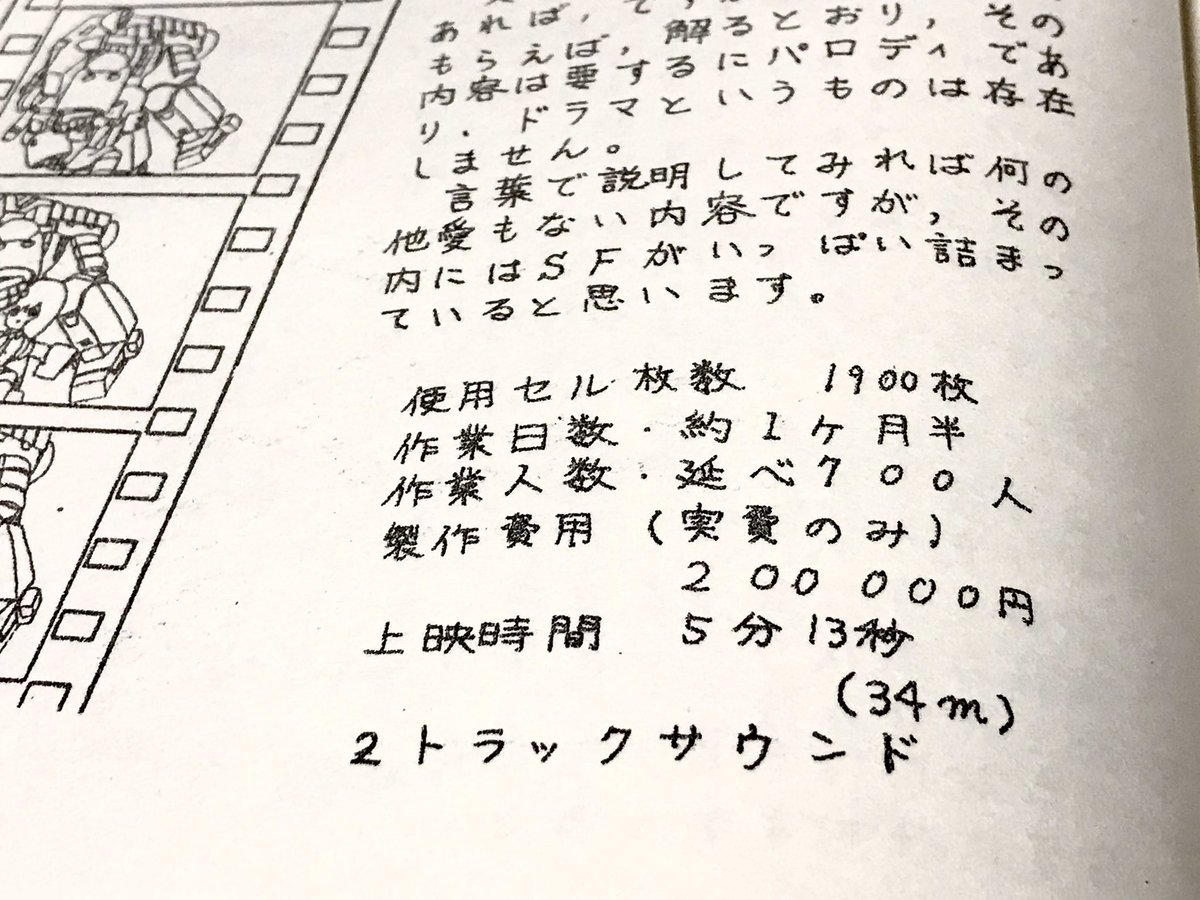 もらえば，解るとおり，その
内容は要するにパロディであ
り・ドラマというものは存在
しません。
言葉で説明してみれば何の
他愛もない内容ですが，その
内にはSFがいっぱい詰まっ
ていると思います。
使用セル枚数 1900枚
作業日数・約1ヶ月半
作業人数・延べ700人
製作費用（実費のみ）
200000円
上映時間 5分13秒
(34m)
2トラックサウンド